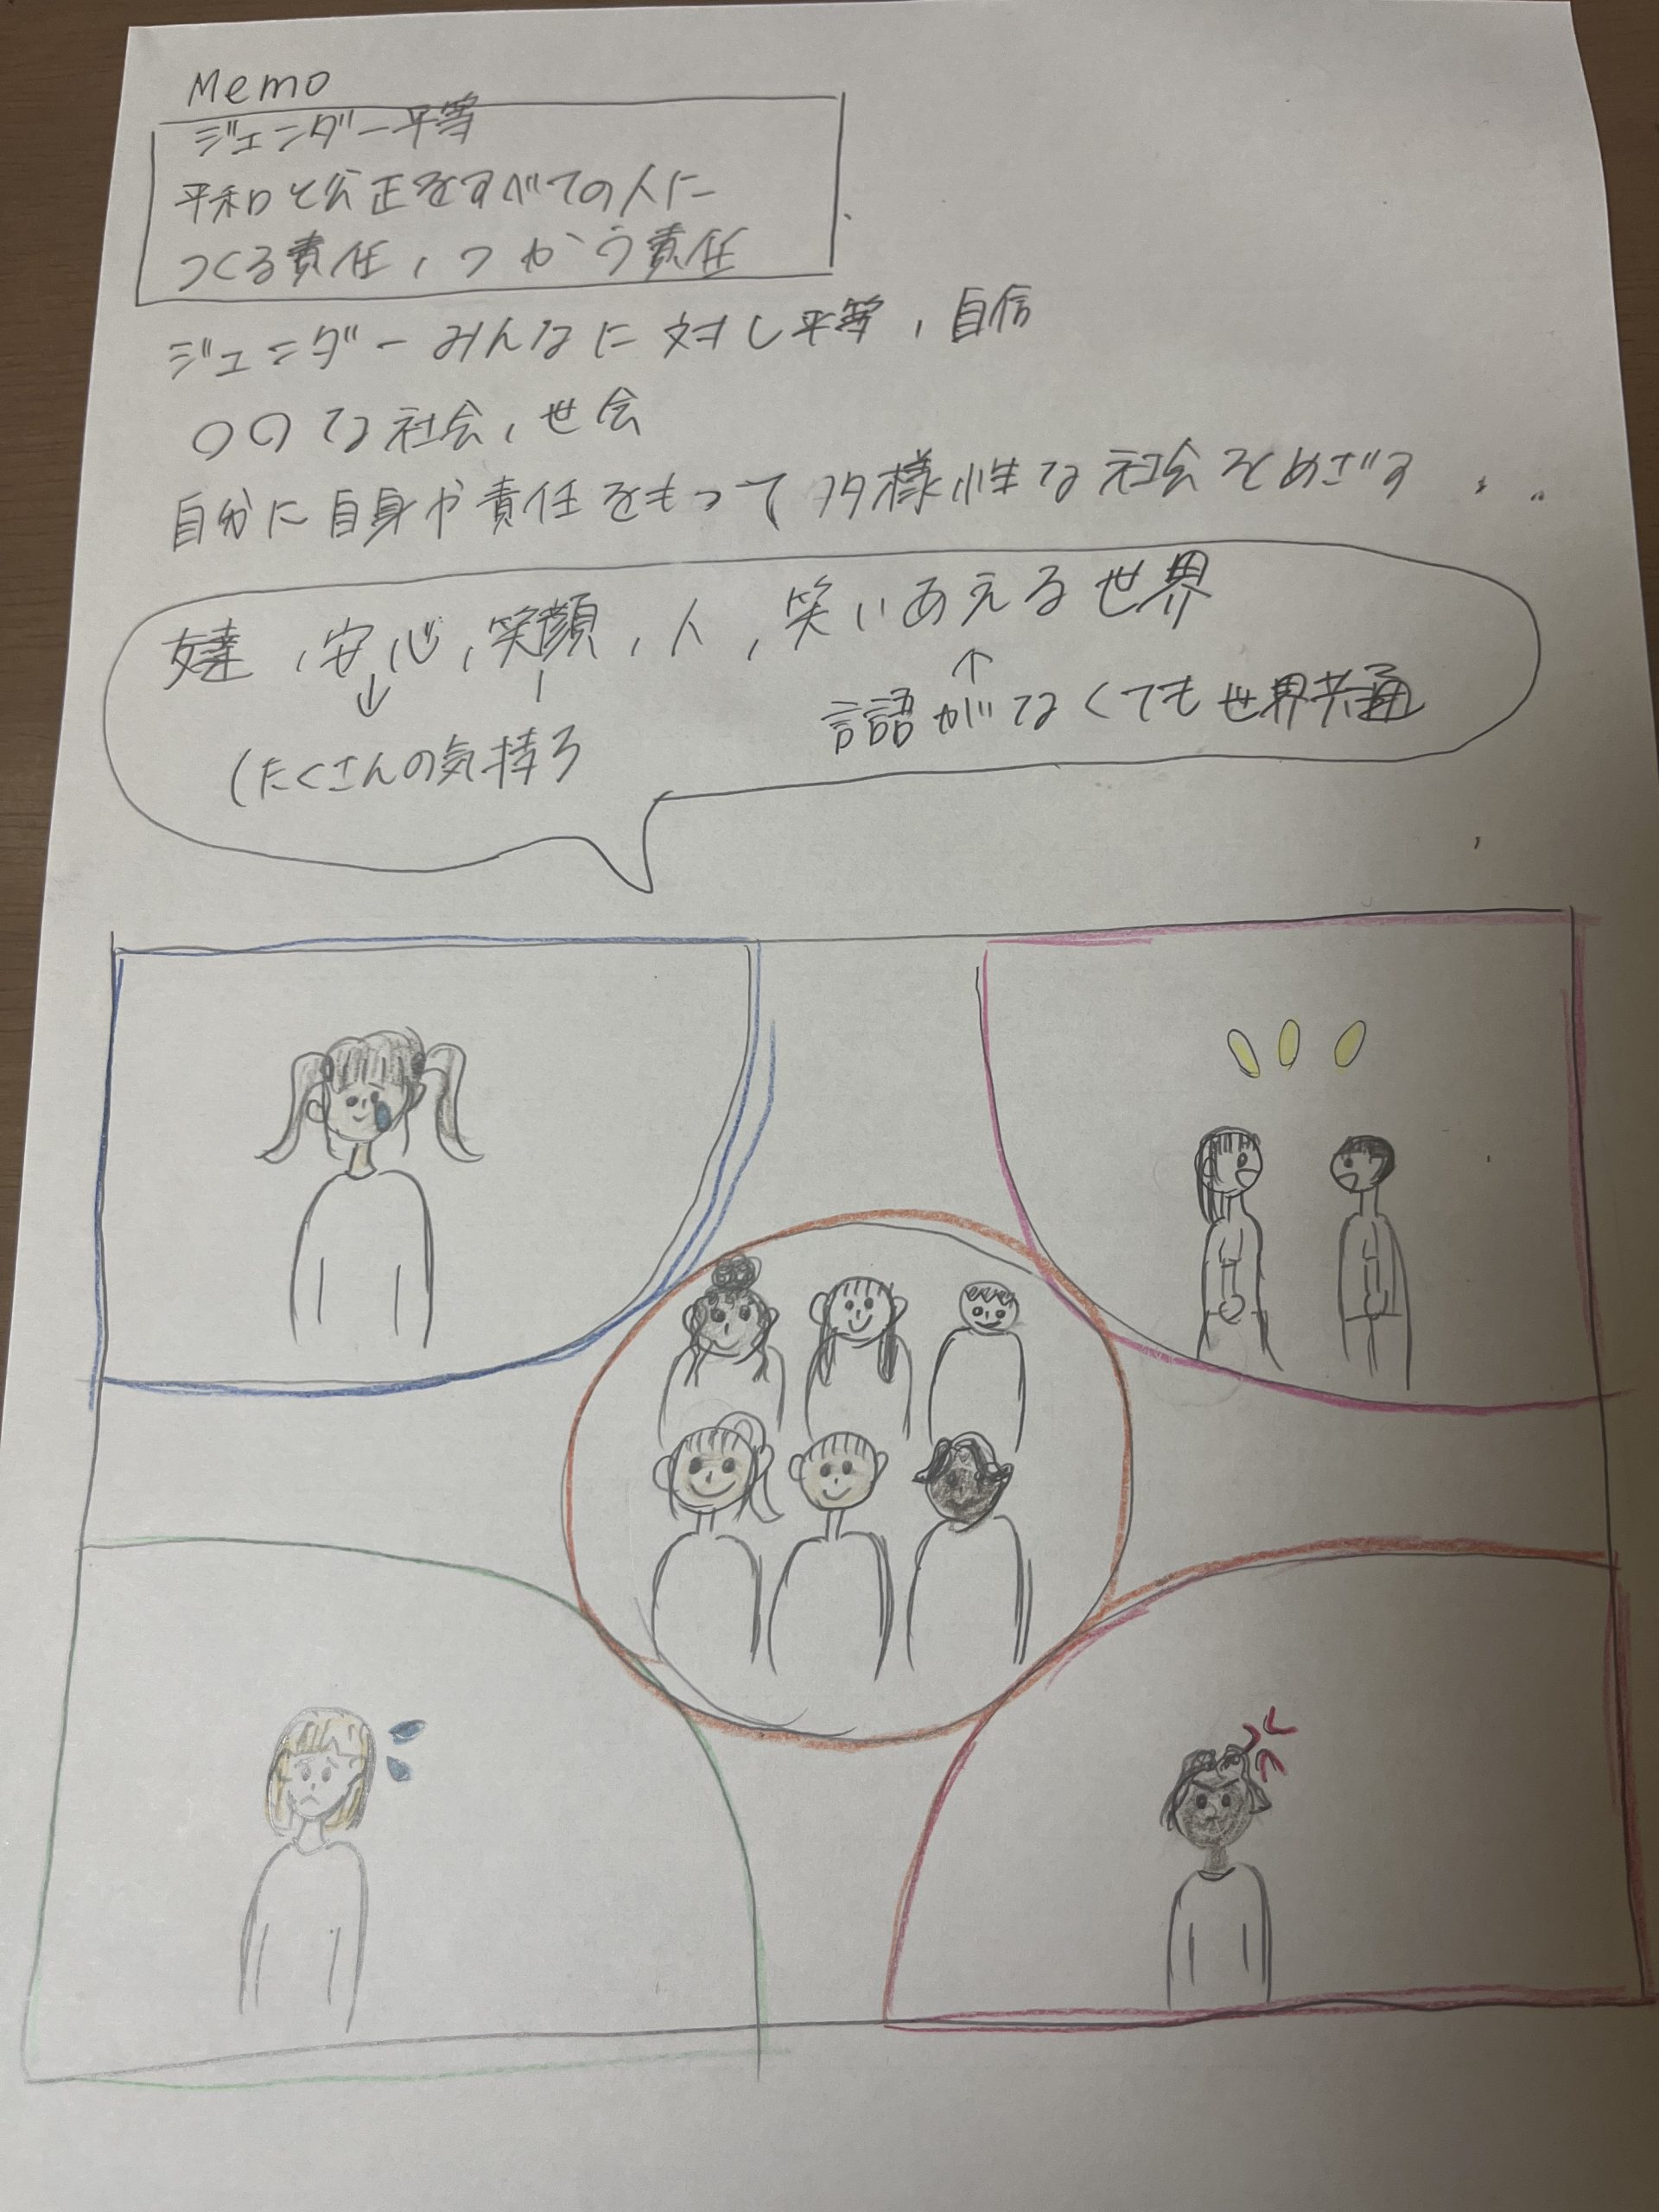 Memo
ジェンダー平等
平和と公正をすべての人に
つくる責任、つかう責任
ジェンダーみんなに対し平等、自信
〇〇な社会、世会
自分に自身や責任をもって多様性な社会をめざす
安心、笑顔、人、笑いあえる世界
↓ ↑
(たくさんの気持ち
言語がなくても世界共通